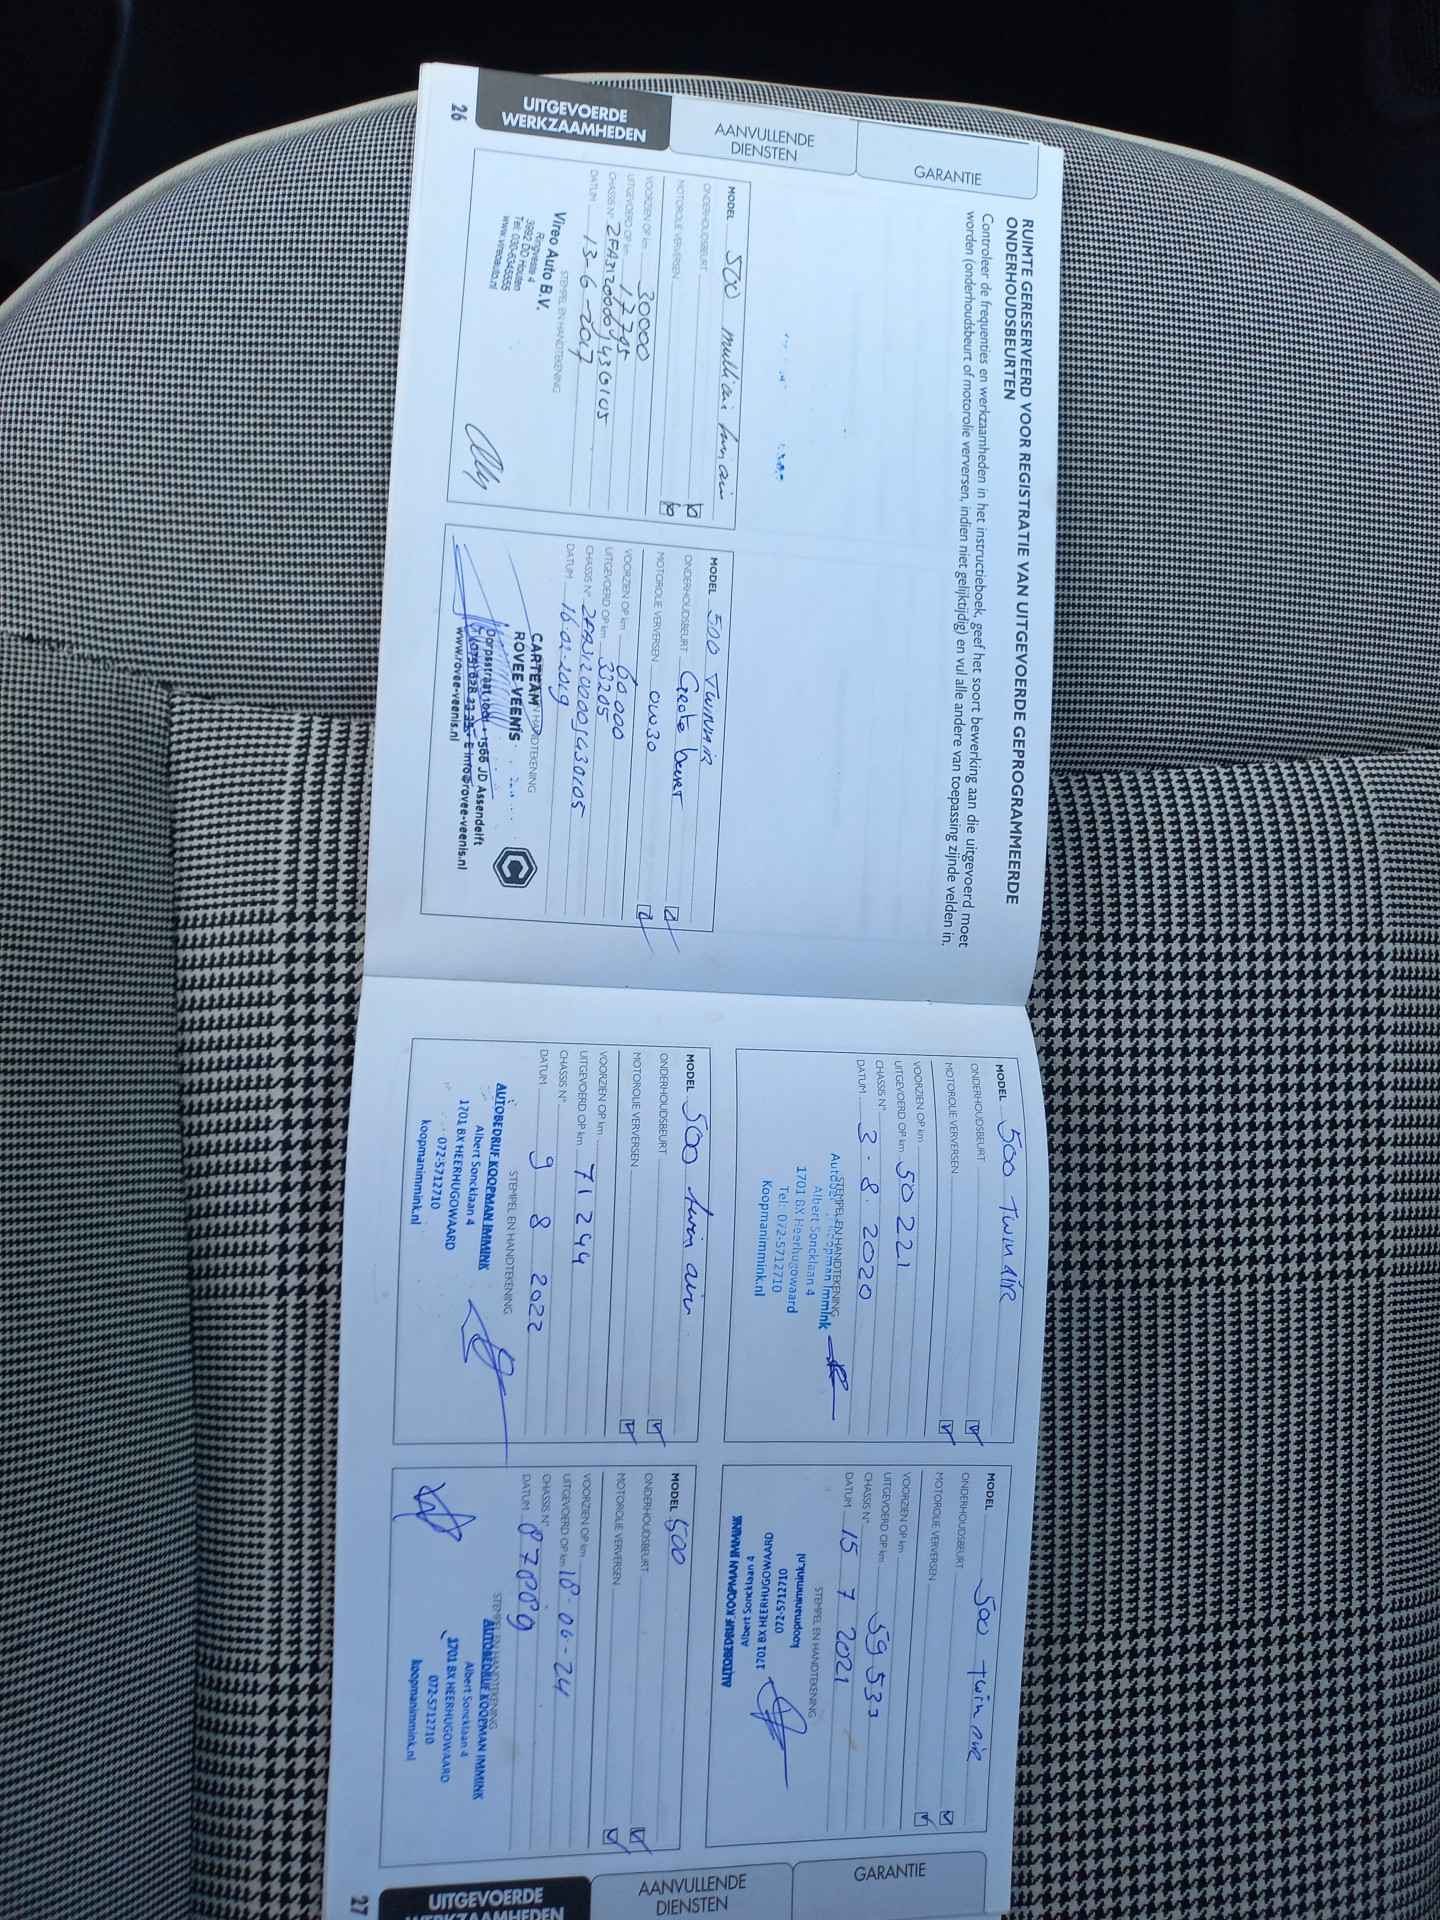 26
UITGEVOERDE
WERKZAAMHEDEN
AANVULLENDE
DIENSTEN
GARANTIE
RUIMTE GERESERVEERD VOOR REGISTRATIE VAN UITGEVOERDE GEPROGRAMMEERDE
ONDERHOUDSBEURTEN
Controleer de frequenties en werkzaamheden in het instructieboek, geef het soort bewerking aan die uitgevoerd moet
worden (onderhoudsbeurt of motorolie verversen, indien niet gelijktijdig) en vul alle andere van toepassing zijnde velden in.
MODEL 500
ONDERHOUDSBEURT
MOTOROLIE VERVERSEN
VOORZIEN OP km 30000
UITGEVOERD OP km 17795
CHASSIS N°
DATUM 13-6-2017
STEMPEL EN HANDTEKENING
Vireo Auto B.V.
Ringveste 4
3992 DD Houten
Tel: 030-6345555
www.vireoauto.nl
MODEL 500 TWINAIR
ONDERHOUDSBEURT Grote beurt
MOTOROLIE VERVERSEN 0W30
VOORZIEN OP km 60.000
UITGEVOERD OP km 33205
CHASSIS N°
DATUM 16-02-2019
CARTEAM
ROVEE VEENIS
Dorpsstraat 1001 - 1566 JD Assendelft
E info@rovee-veenis.nl
www.rovee-veenis.nl
MODEL 500 TWINAIR
ONDERHOUDSBEURT
MOTOROLIE VERVERSEN
VOORZIEN OP km
UITGEVOERD OP km 50221
CHASSIS N°
DATUM 3-8-2020
STEMPEL EN HANDTEKENING
Koopman Immink
Albert Soncklaan 4
1701 BX Heerhugowaard
Tel: 072-5712710
Koopmanimmink.nl
MODEL 500 Twin air
ONDERHOUDSBEURT
MOTOROLIE VERVERSEN
VOORZIEN OP km
UITGEVOERD OP km 59533
CHASSIS N°
DATUM 15 7 2021
STEMPEL EN HANDTEKENING
AUTOBEDRIJF KOOPMAN IMMINK
Albert Soncklaan 4
1701 BX HEERHUGOWAARD
072-5712710
koopmanimmink.nl
MODEL 500 twin air
ONDERHOUDSBEURT
MOTOROLIE VERVERSEN
VOORZIEN OP km
UITGEVOERD OP km 71244
CHASSIS N°
DATUM 9 8 2022
STEMPEL EN HANDTEKENING
AUTOBEDRIJF KOOPMAN IMMINK
Albert Soncklaan 4
1701 BX HEERHUGOWAARD
072-5712710
koopmanimmink.nl
MODEL 500
ONDERHOUDSBEURT
MOTOROLIE VERVERSEN
VOORZIEN OP km
UITGEVOERD OP km 18-06-24
CHASSIS N°
DATUM 87889
STEMPEL EN HANDTEKENING
AUTOBEDRIJF KOOPMAN IMMINK
Albert Soncklaan 4
1701 BX HEERHUGOWAARD
072-5712710
koopmanimmink.nl
27
UITGEVOERDE
WERKZAAMHEDEN
AANVULLENDE
DIENSTEN
GARANTIE